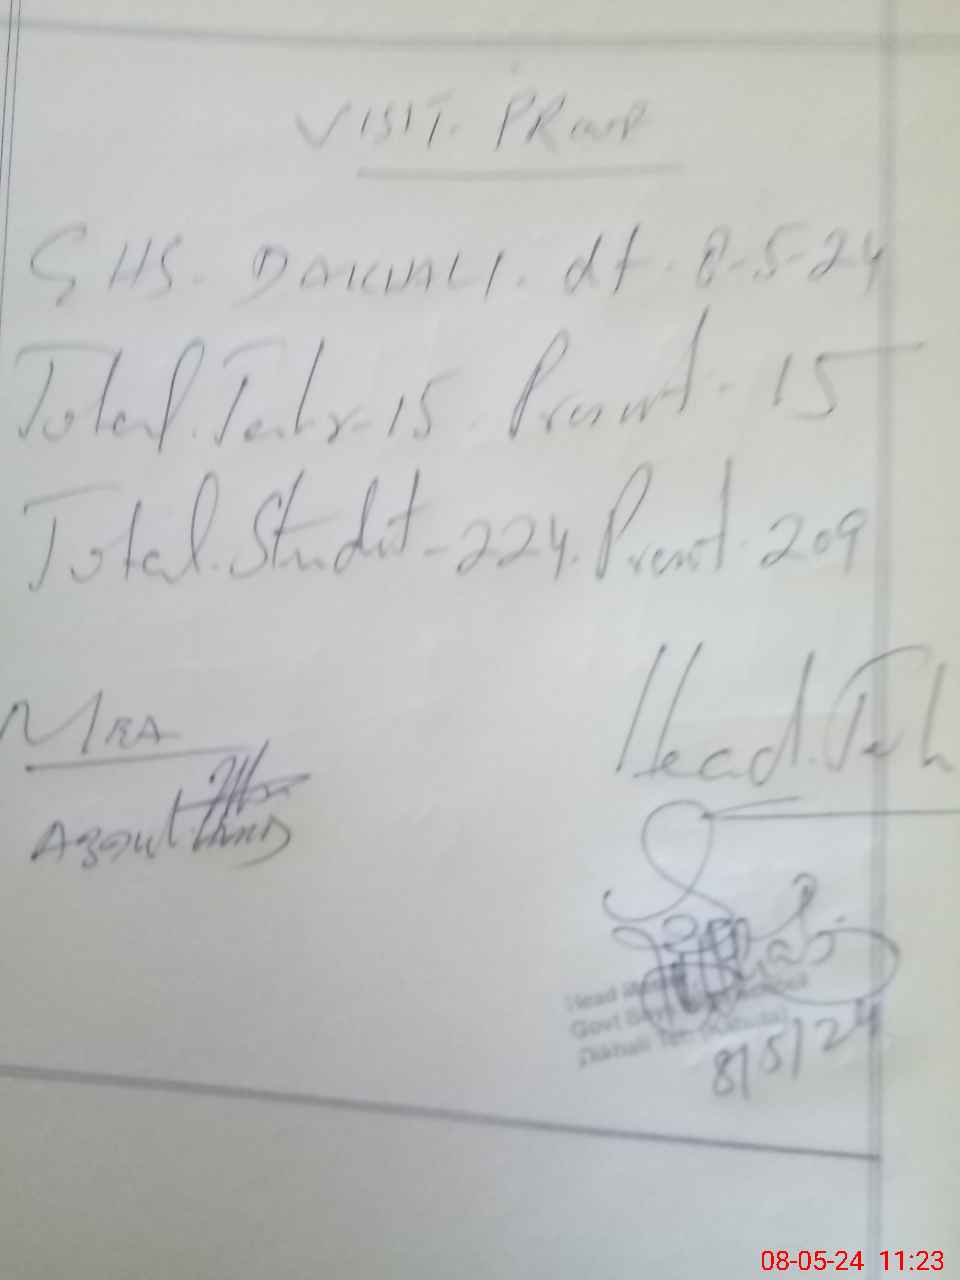 VISIT. PRoof
GHS. DAKHALI. dt. 8-5-24
Total. Techr-15. Present-15
Total. Studnt-224. Present. 209
MEA
Head. Teh
Head
Govt
Dikhali
8/5/24
08-05-24 11:23